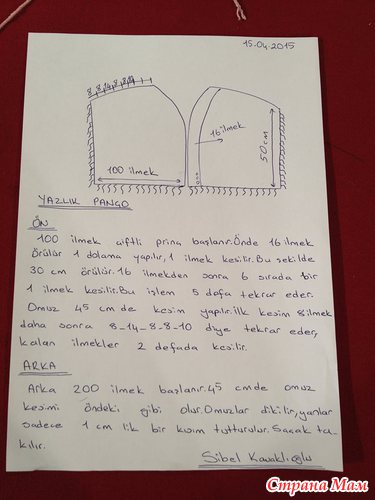 15.04.2015
8 8 14 8 8 10
16 ilmek
100 ilmek
50 cm
YAZLIK PANÇO
ÖN
100 ilmek çiftli prina başlanır.Önde 16 ilmek
örülür 1 dolama yapılır, 1 ilmek kesilir.Bu şekilde
30 cm örülür.16 ilmekden sonra 6 sırada bir
1 ilmek kesilir.Bu işlem 5 defa tekrar eder.
Omuz 45 cm de kesim yapılır.İlk kesim 8 ilmek
daha sonra 8-14-8-8-10 diye tekrar eder,
kalan ilmekler 2 defada kesilir.
ARKA
Arka 200 ilmek başlanır.45 cmde omuz
kesimi öndeki gibi olur.Omuzlar dikilir, yanlar
sadece 1 cm lik bir kısım tutturulur. Saçak ta-
kılır.
Sibel Kavaklıoğlu
Страна Мам